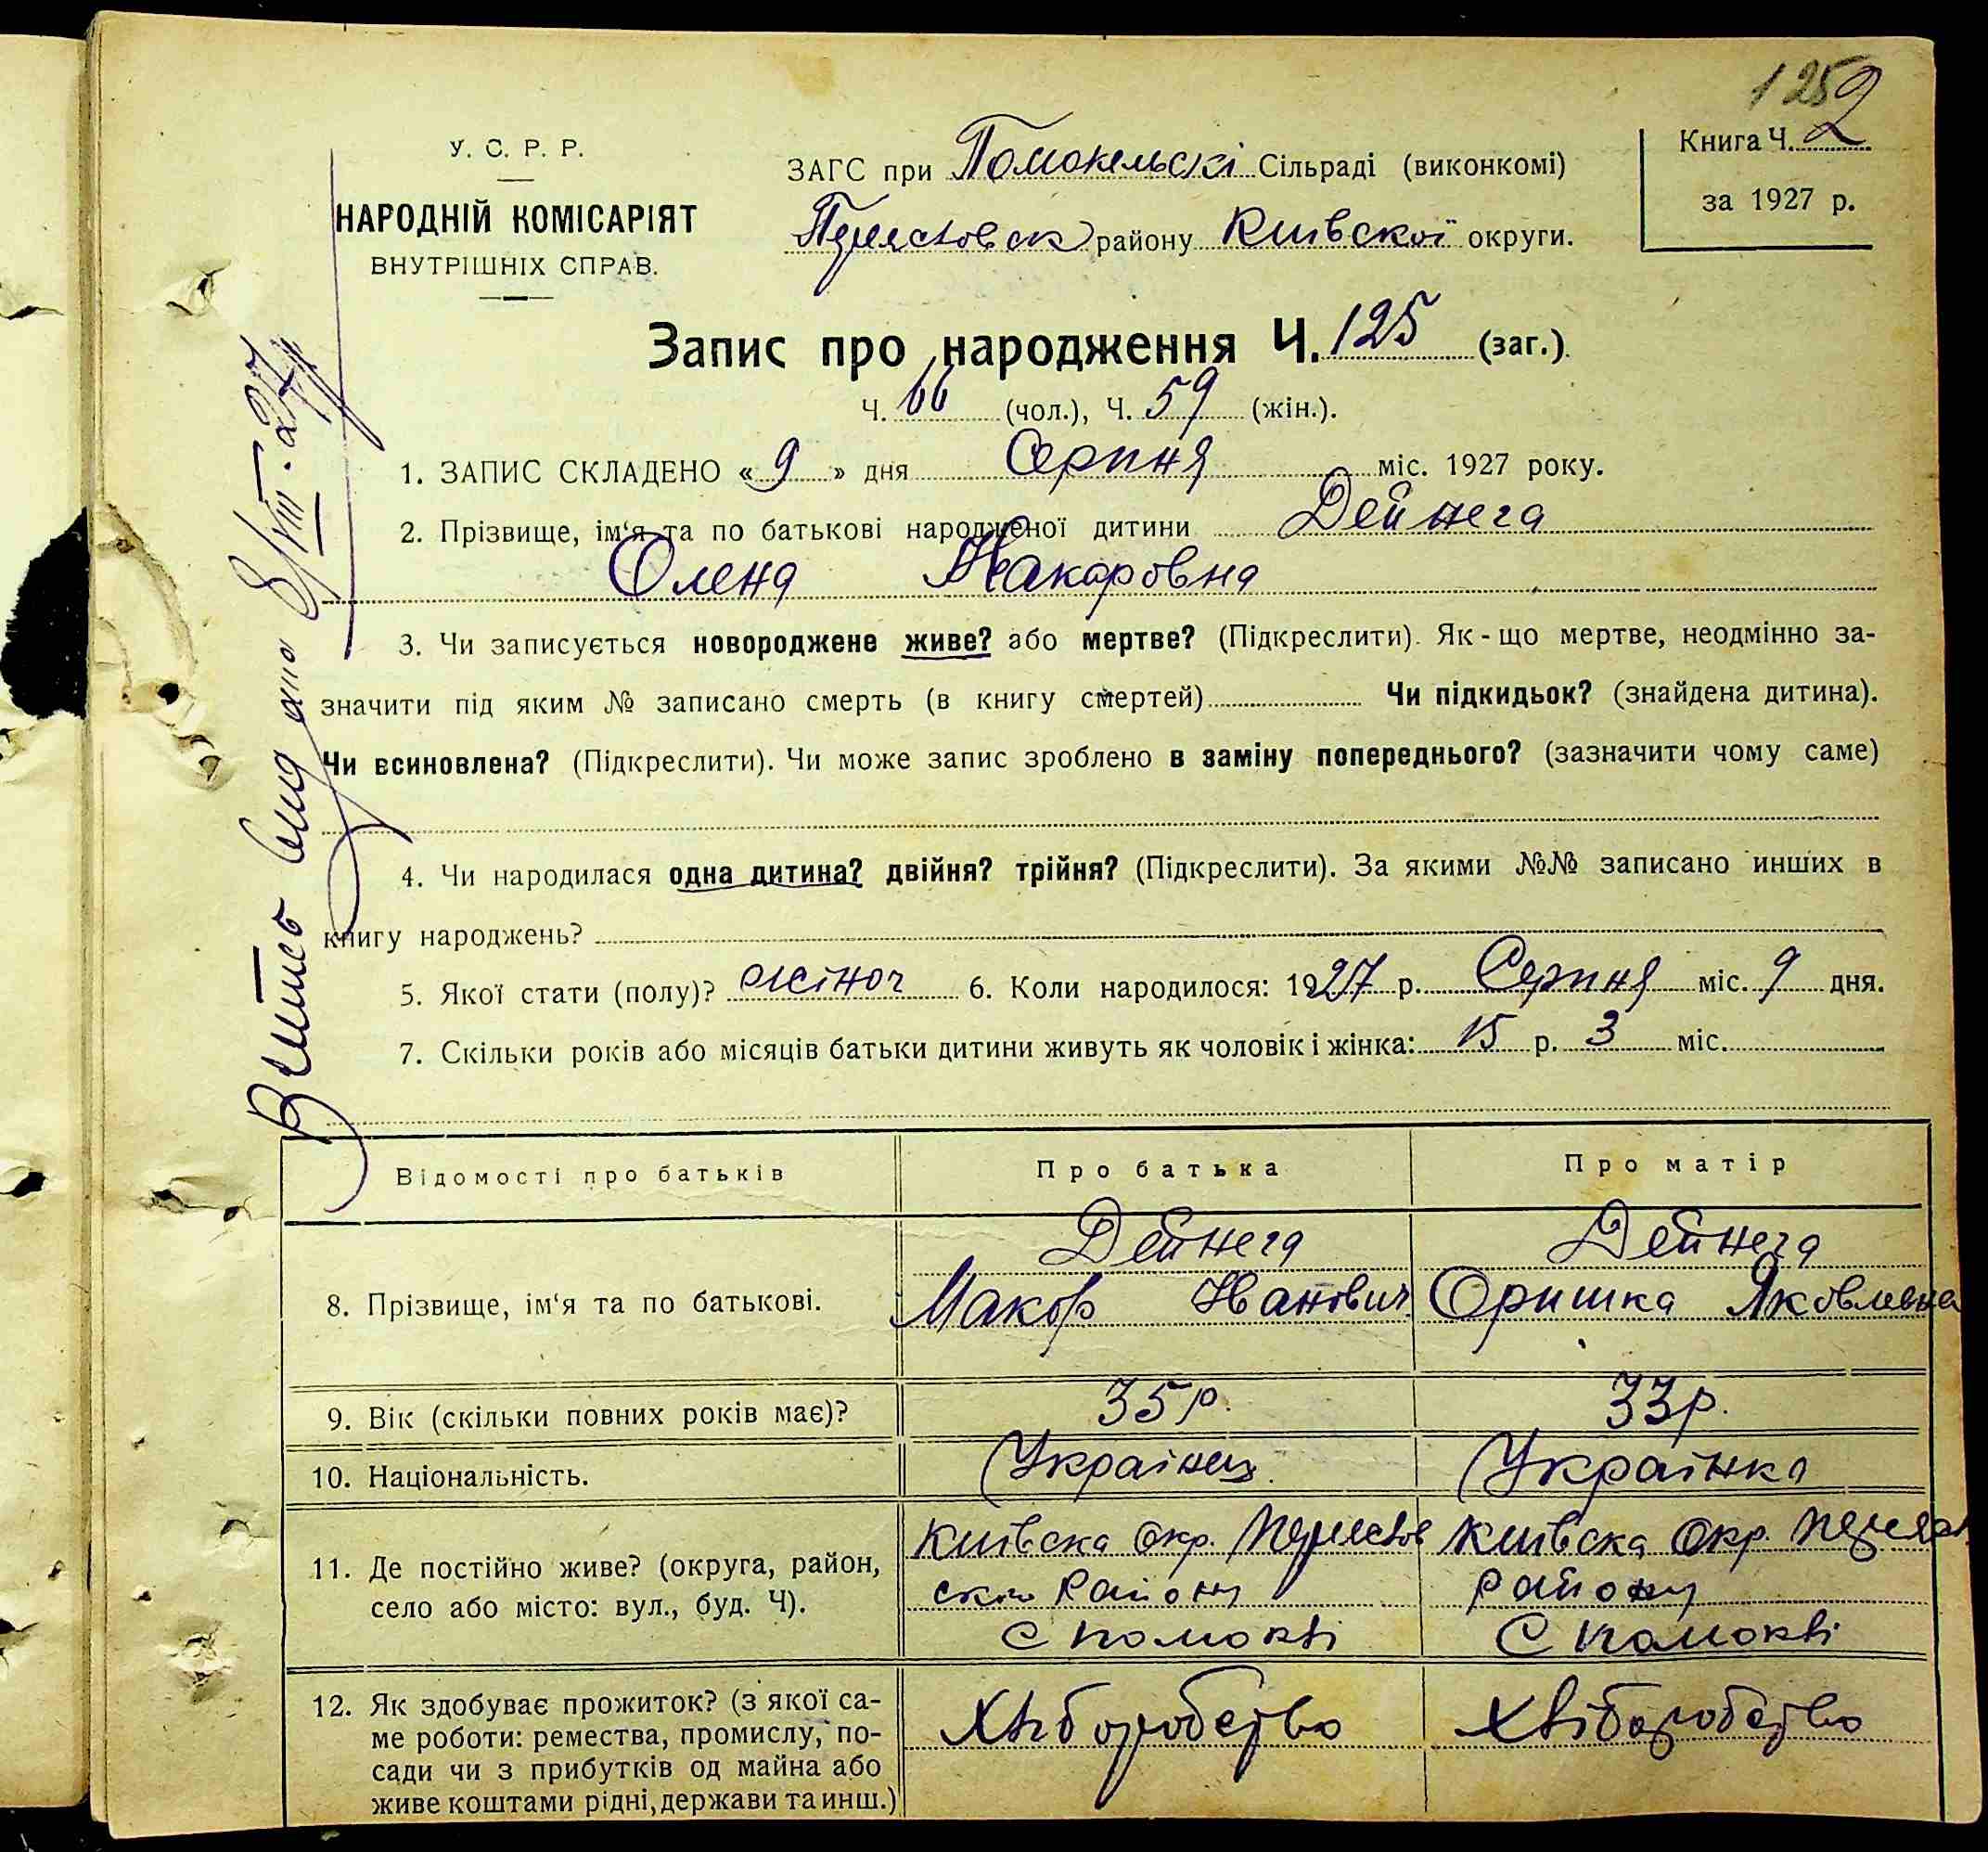 1252
У. С. Р. Р.
НАРОДНІЙ КОМІСАРІЯТ
ВНУТРІШНІХ СПРАВ.
ЗАГС при Помокельскі Сільраді (виконкомі)
району Київскої округи.
Книга Ч. 2
за 1927 р.
Запис про народження Ч. 125 (заг.).
Ч. 66 (чол.), Ч. 59 (жін.).
1. ЗАПИС СКЛАДЕНО «9» дня Серпня міс. 1927 року.
2. Прізвище, ім‘я та по батькові народженої дитини Дейнега
Олена Макаровна
3. Чи записується новороджене живе? або мертве? (Підкреслити). Як-що мертве, неодмінно за-
значити під яким № записано смерть (в книгу смертей) Чи підкидьок? (знайдена дитина).
Чи всиновлена? (Підкреслити). Чи може запис зроблено в заміну попереднього? (зазначити чому саме)
4. Чи народилася одна дитина? двійня? трійня? (Підкреслити). За якими №№ записано инших в
книгу народжень?
5. Якої стати (полу)? жіноч 6. Коли народилося: 1927 р. Серпня міс. 9 дня.
7. Скільки років або місяців батьки дитини живуть як чоловік і жінка: 15 р. 3 міс.
Відомості про батьків Про батька Про матір
Дейнега Дейнега
8. Прізвище, ім‘я та по батькові. Макар Иванович Оришка Яковлевна
9. Вік (скільки повних років має)? 35 р. 33 р.
10. Національність. Українец Українка
Київска Окр. Київска Окр.
11. Де постійно живе? (округа, район, Району Району
село або місто: вул., буд. Ч). С Помоклі С Помоклі
12. Як здобуває прожиток? (з якої са-
ме роботи: ремества, промислу, по- Хліборобство Хліборобство
сади чи з прибутків од майна або
живе коштами рідні, держави та инш.)